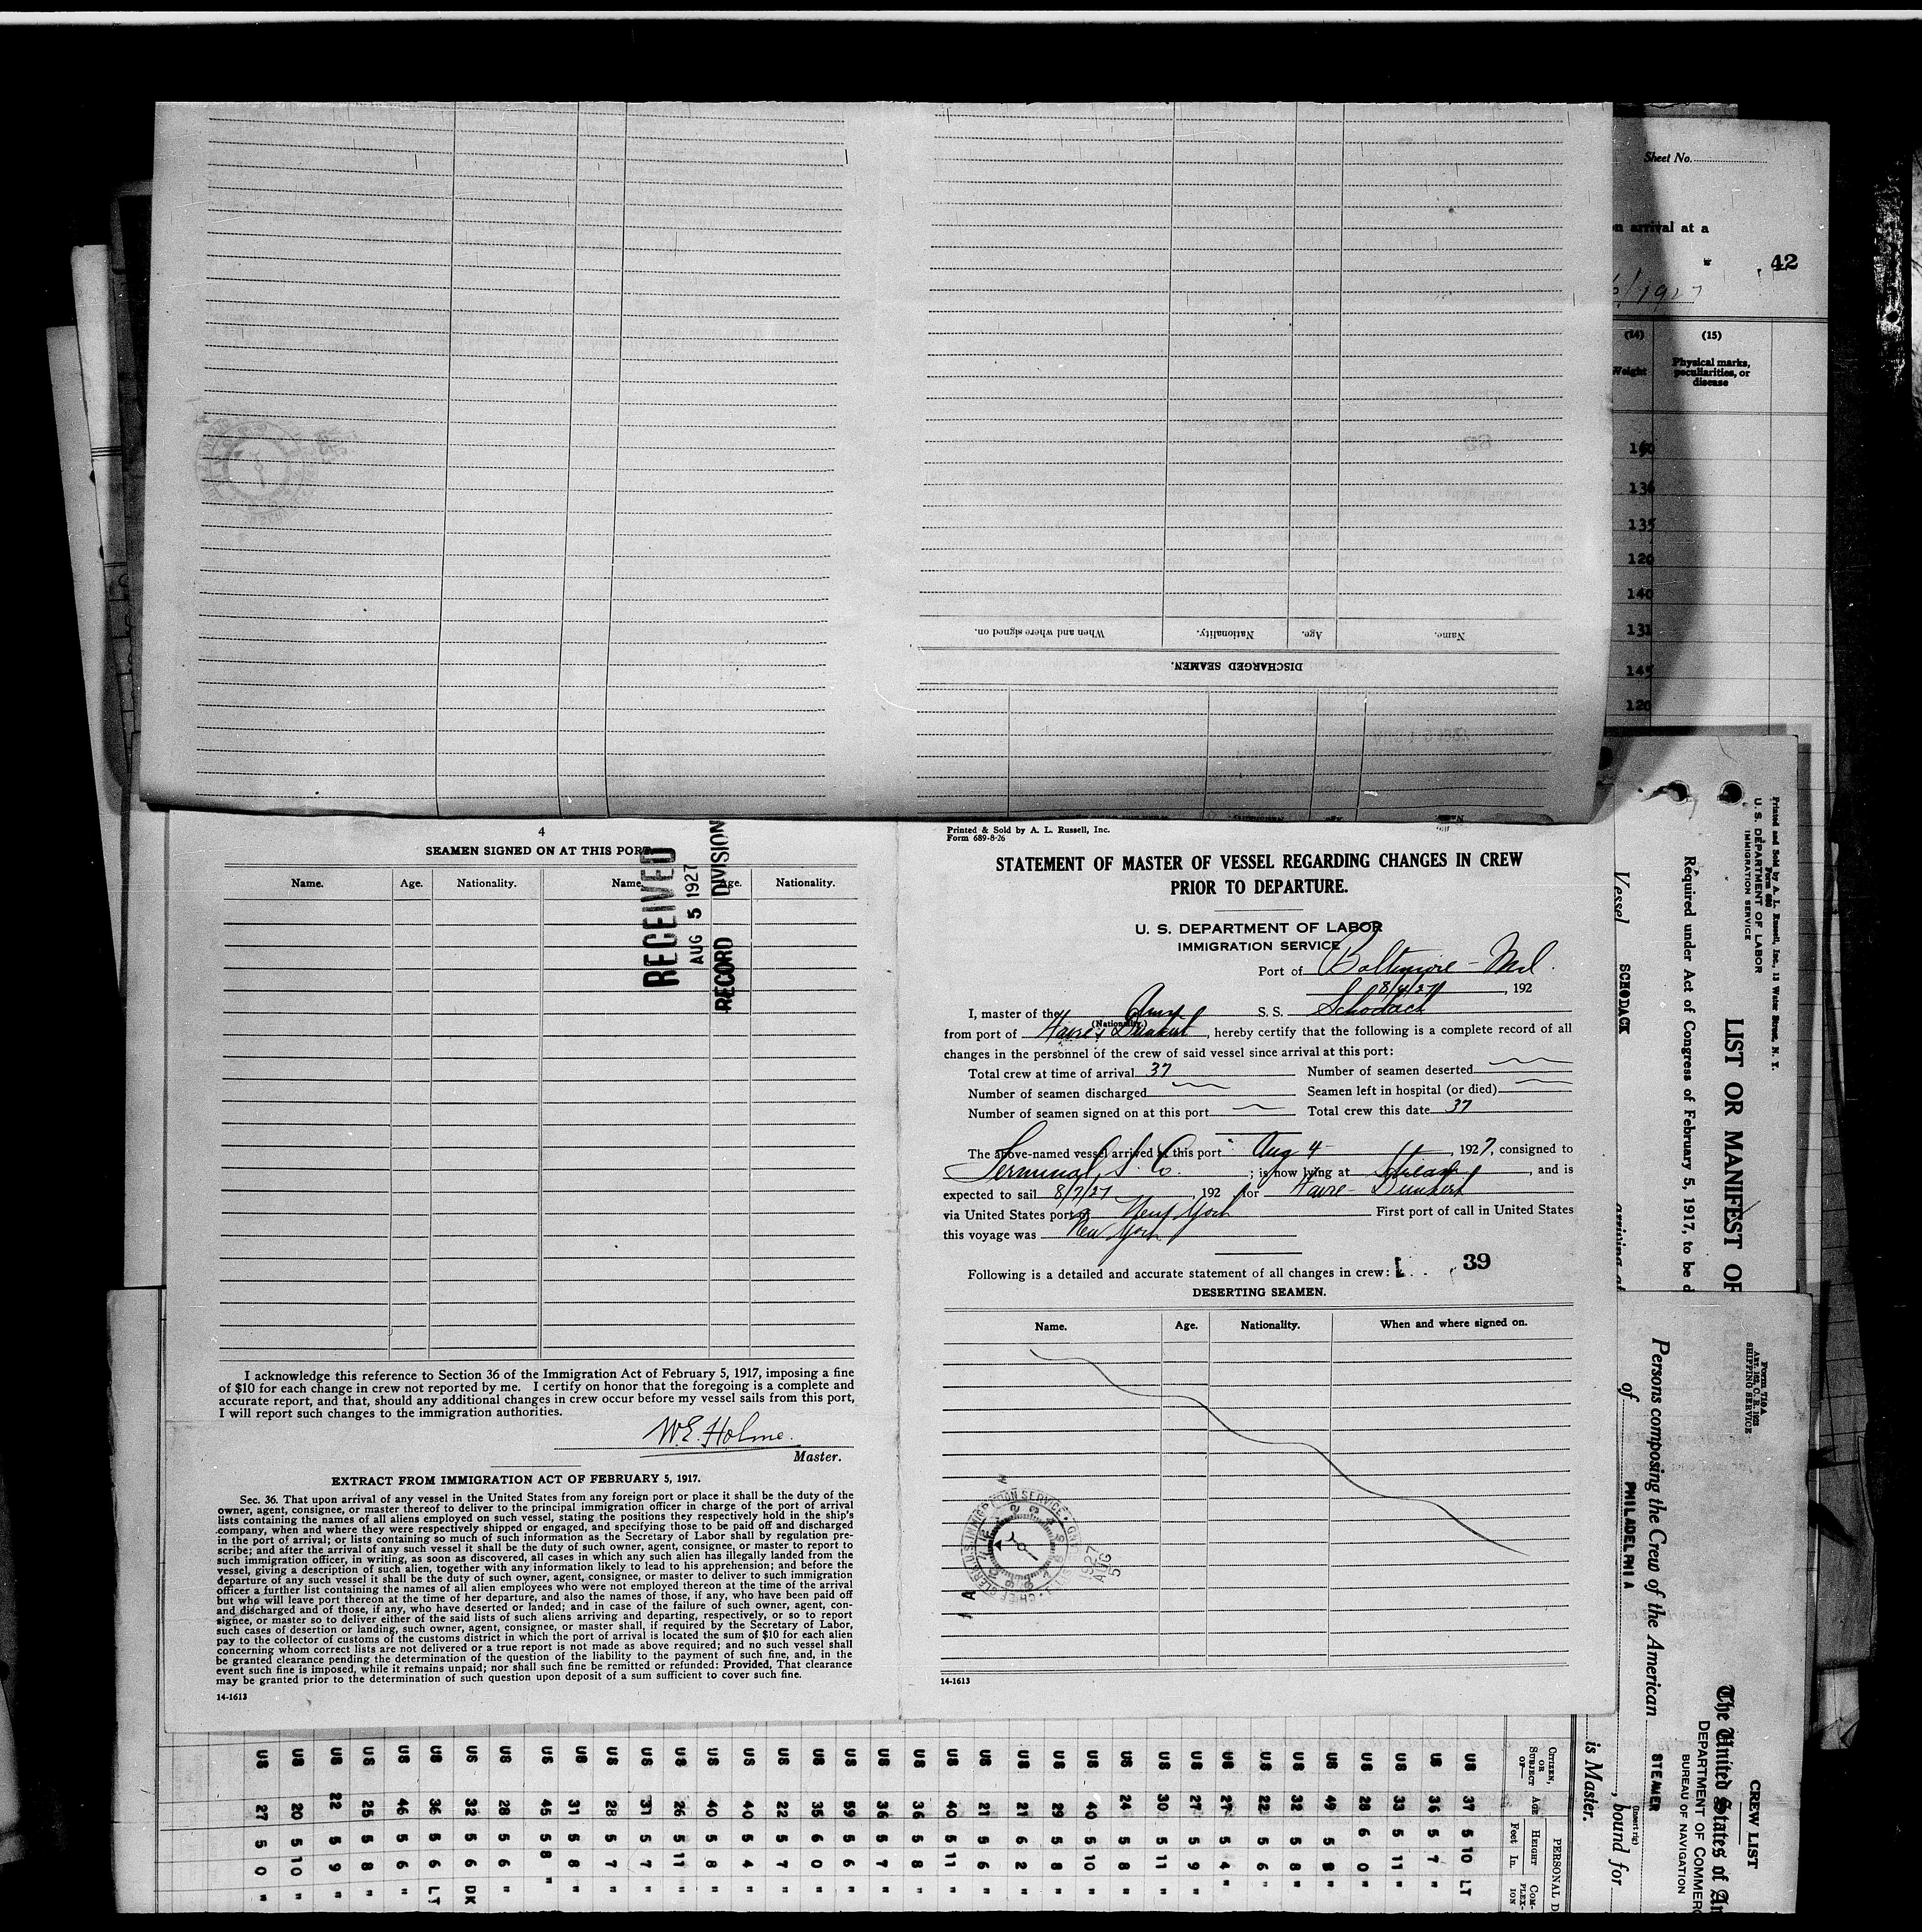 Sheet No.
arrival at a
42
(14)
(15)
Weight
Physical marks,
peculiarities, or
disease
136
135
120
140
131
145
120
When and where signed on.
Nationality.
Age.
Name.
DISCHARGED SEAMEN.
4
SEAMEN SIGNED ON AT THIS PORT.
Name.
Age.
Nationality.
Name.
Age.
Nationality.
RECEIVED
AUG 5 1927
RECORD DIVISION
I acknowledge this reference to Section 36 of the Immigration Act of February 5, 1917, imposing a fine
of $10 for each change in crew not reported by me. I certify on honor that the foregoing is a complete and
accurate report, and that, should any additional changes in crew occur before my vessel sails from this port,
I will report such changes to the immigration authorities.
W.E. Holme.
Master.
EXTRACT FROM IMMIGRATION ACT OF FEBRUARY 5, 1917.
Sec. 36. That upon arrival of any vessel in the United States from any foreign port or place it shall be the duty of the
owner, agent, consignee, or master thereof to deliver to the principal immigration officer in charge of the port of arrival
lists containing the names of all aliens employed on such vessel, stating the positions they respectively hold in the ship's
company, when and where they were respectively shipped or engaged, and specifying those to be paid off and discharged
in the port of arrival; or lists containing so much of such information as the Secretary of Labor shall by regulation pre-
scribe; and after the arrival of any such vessel it shall be the duty of such owner, agent, consignee, or master to report to
such immigration officer, in writing, as soon as discovered, all cases in which any such alien has illegally landed from the
vessel, giving a description of such alien, together with any information likely to lead to his apprehension; and before the
departure of any such vessel it shall be the duty of such owner, agent, consignee, or master to deliver to such immigration
officer a further list containing the names of all alien employees who were not employed thereon at the time of the arrival
but who will leave port thereon at the time of her departure, and also the names of those, if any, who have been paid off
and discharged and of those, if any, who have deserted or landed; and in case of the failure of such owner, agent, con-
signee, or master so to deliver either of the said lists of such aliens arriving and departing, respectively, or so to report
such cases of desertion or landing, such owner, agent, consignee, or master shall, if required by the Secretary of Labor,
pay to the collector of customs of the customs district in which the port of arrival is located the sum of $10 for each alien
concerning whom correct lists are not delivered or a true report is not made as above required; and no such vessel shall
be granted clearance pending the determination of the question of the liability to the payment of such fine, and, in the
event such fine is imposed, while it remains unpaid; nor shall such fine be remitted or refunded: Provided, That clearance
may be granted prior to the determination of such question upon deposit of a sum sufficient to cover such fine.
14-1613
Printed & Sold by A. L. Russell, Inc.
Form 689-8-26
STATEMENT OF MASTER OF VESSEL REGARDING CHANGES IN CREW
PRIOR TO DEPARTURE.
U. S. DEPARTMENT OF LABOR
IMMIGRATION SERVICE
Port of Baltimore - Md.
8/4/27, 192
I, master of the Amer S. S. Schodack
(Nationality)
from port of Havre & Dunkirk, hereby certify that the following is a complete record of all
changes in the personnel of the crew of said vessel since arrival at this port:
Total crew at time of arrival 37 Number of seamen deserted
Number of seamen discharged Seamen left in hospital (or died)
Number of seamen signed on at this port Total crew this date 37
The above-named vessel arrived at this port Aug 4, 1927, consigned to
Terminal S. Co.; is now lying at Stream, and is
expected to sail 8/7/27, 192 for Havre - Dunkirk
via United States port of New York First port of call in United States
this voyage was New York
Following is a detailed and accurate statement of all changes in crew:
39
DESERTING SEAMEN.
Name.
Age.
Nationality.
When and where signed on.
1927
AUG
5
14-1613
Printed and Sold by A. L. Russell, Inc., 13 Water Street, N. Y.
U. S. DEPARTMENT OF LABOR
IMMIGRATION SERVICE
LIST OR MANIFEST OF
Required under Act of Congress of February 5, 1917, to be d
Vessel SCHODACK
arriving at
Form 710 A
SHIPPING SERVICE
CREW LIST
The United States of Am
DEPARTMENT OF COMMERC
BUREAU OF NAVIGATION
Persons composing the Crew of the American STEAMER
(Insert rig)
of PHILADELPHIA, bound for
is Master.
PERSONAL D
CITIZEN, OR SUBJECT OF—
AGE
HEIGHT
Feet In.
COMPLEXION
US 37 5 10 LT
US 36 5 7 "
US 33 5 11 "
US 28 6 0 "
US 49 5 8 "
US 32 5 8 "
US 22 5 6 "
US 27 5 4 "
US 27 5 9 "
US 30 5 11 "
US 24 5 8 "
US 40 5 10 "
US 29 5 8 "
US 21 6 2 "
US 21 5 6 "
US 40 5 11 "
US 36 5 8 "
US 36 5 7 "
US 59 5 6 "
US 35 6 0 "
US 22 5 7 "
US 40 5 4 "
US 40 5 8 "
US 26 5 11 "
US 31 5 7 "
US 28 5 7 "
US 31 5 8 "
US 45 5 8 "
US 28 5 6 "
US 32 5 6 DK
US 36 5 6 LT
US 46 5 6 "
US 25 5 8 "
US 22 5 9 "
US 20 5 10 "
US 27 5 0 "